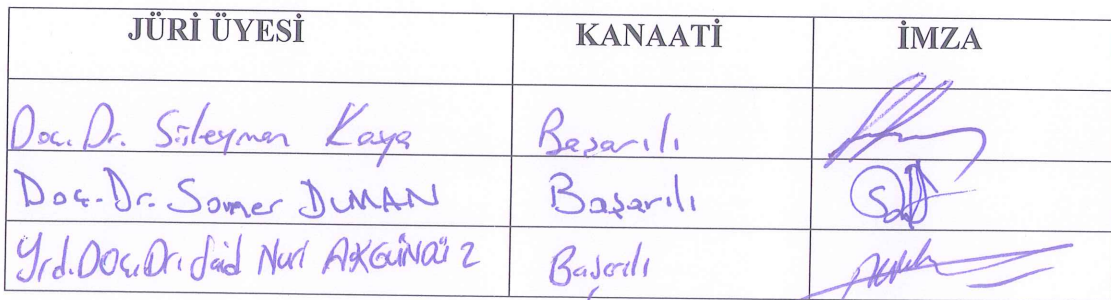 JÜRİ ÜYESİ KANAATİ İMZA
Doç. Dr. Süleyman Kaya Başarılı
Doç. Dr. Soner DUMAN Başarılı
Yrd. Doç. Dr. Said Nuri AKGÜNDÜZ Başarılı